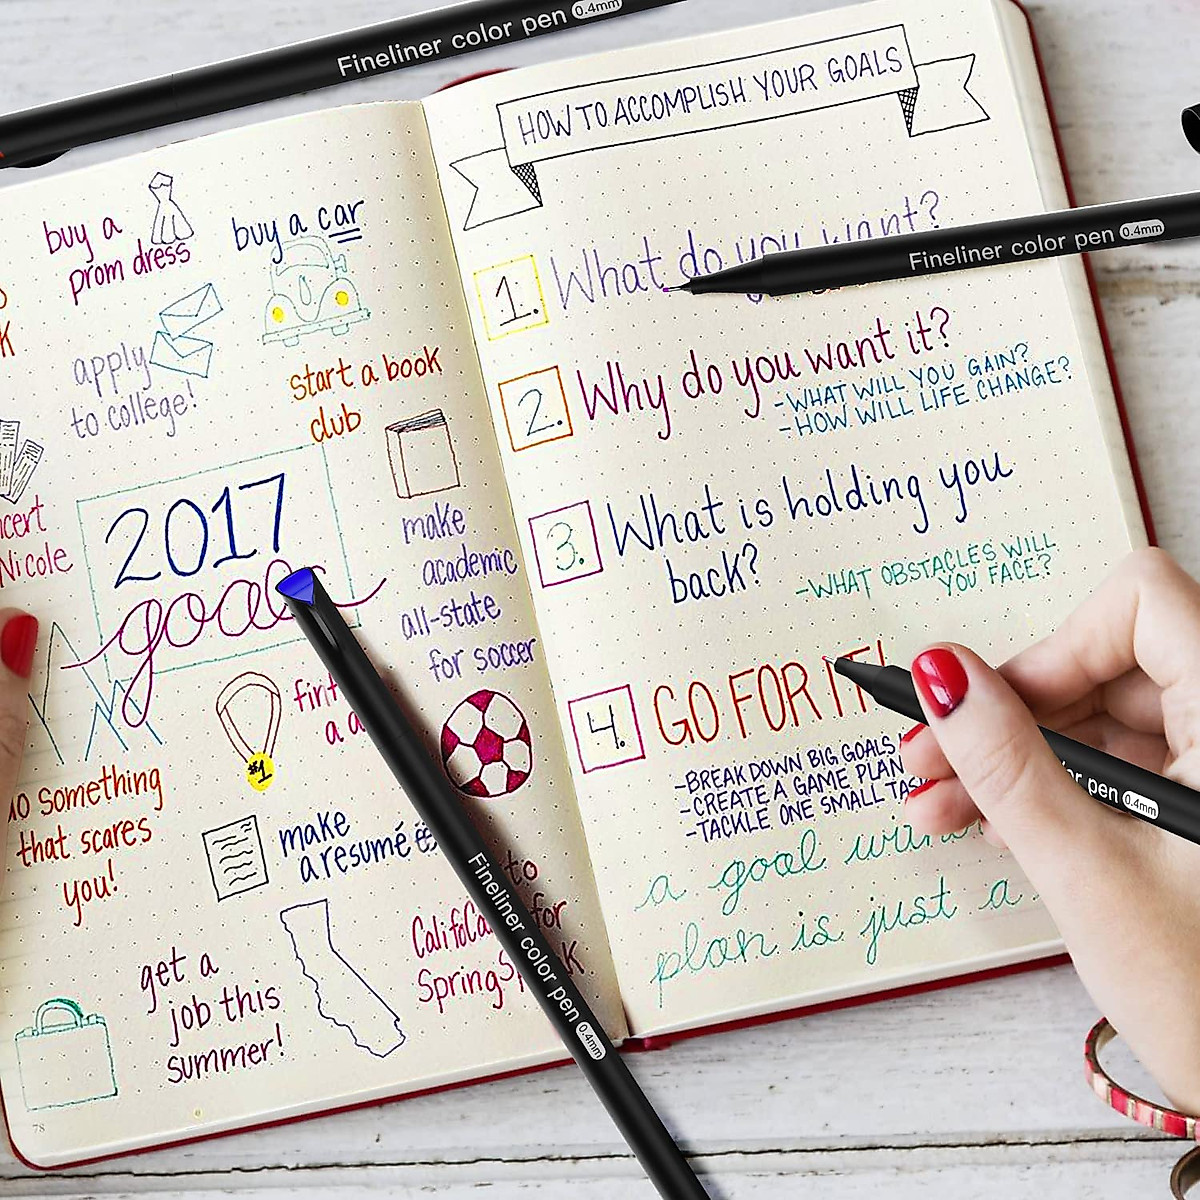 Fineliner color pen 0.4mm
buy a
prom dress
buy a car
apply
to college!
start a book
club
Nicole
2017
goals
make
academic
all-state
for soccer
#1
something
that scares
you!
make
a resumé
to
for
Spring
get a
job this
summer!
78
Fineliner color pen 0.4mm
HOW TO ACCOMPLISH YOUR GOALS
1. What do you want?
Fineliner color pen 0.4mm
2. Why do you want it?
-WHAT WILL YOU GAIN?
-HOW WILL LIFE CHANGE?
3. What is holding you
back?
-WHAT OBSTACLES WILL
YOU FACE?
4. GO FOR IT!
-BREAK DOWN BIG GOALS
-CREATE A GAME PLAN
-TACKLE ONE SMALL
a goal
plan is just a
pen 0.4mm